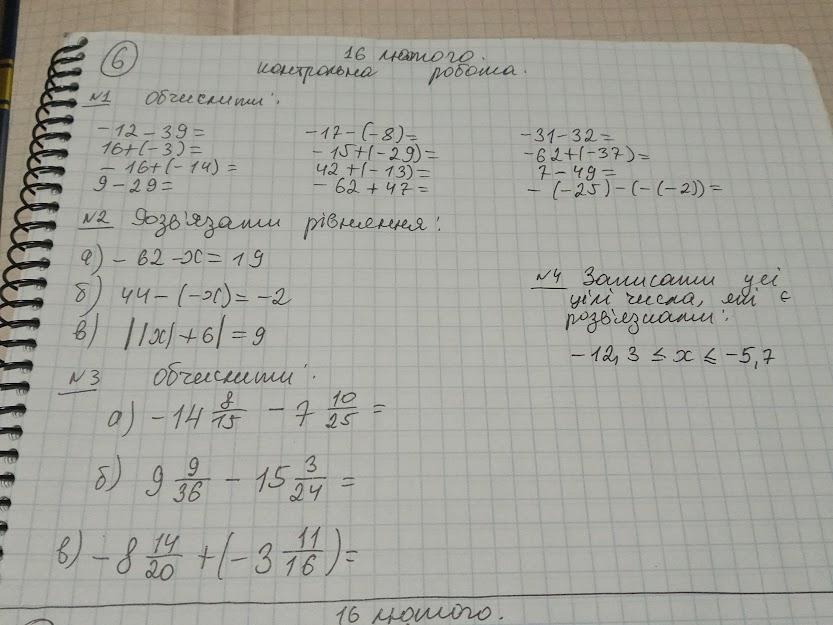 6
16 лютого.
контрольна робота.
№1 Обчислити:
-12-39=
16+(-3)=
-16+(-14)=
9-29=
-17-(-8)=
-15+(-29)=
42+(-13)=
-62+47=
-31-32=
-62+(-37)=
7-49=
-(-25)-(-(-2))=
№2 Розв'язати рівняння:
а) -62-x=19
б) 44-(-x)=-2
в) ||x|+6|=9
№3 Обчислити:
а) -14 8/15 - 7 10/25 =
б) 9 9/36 - 15 3/24 =
в) -8 14/20 + (-3 11/16)=
№4 Записати усі
цілі числа, які є
розв'язками:
-12,3 ≤ x ≤ -5,7
16 лютого.